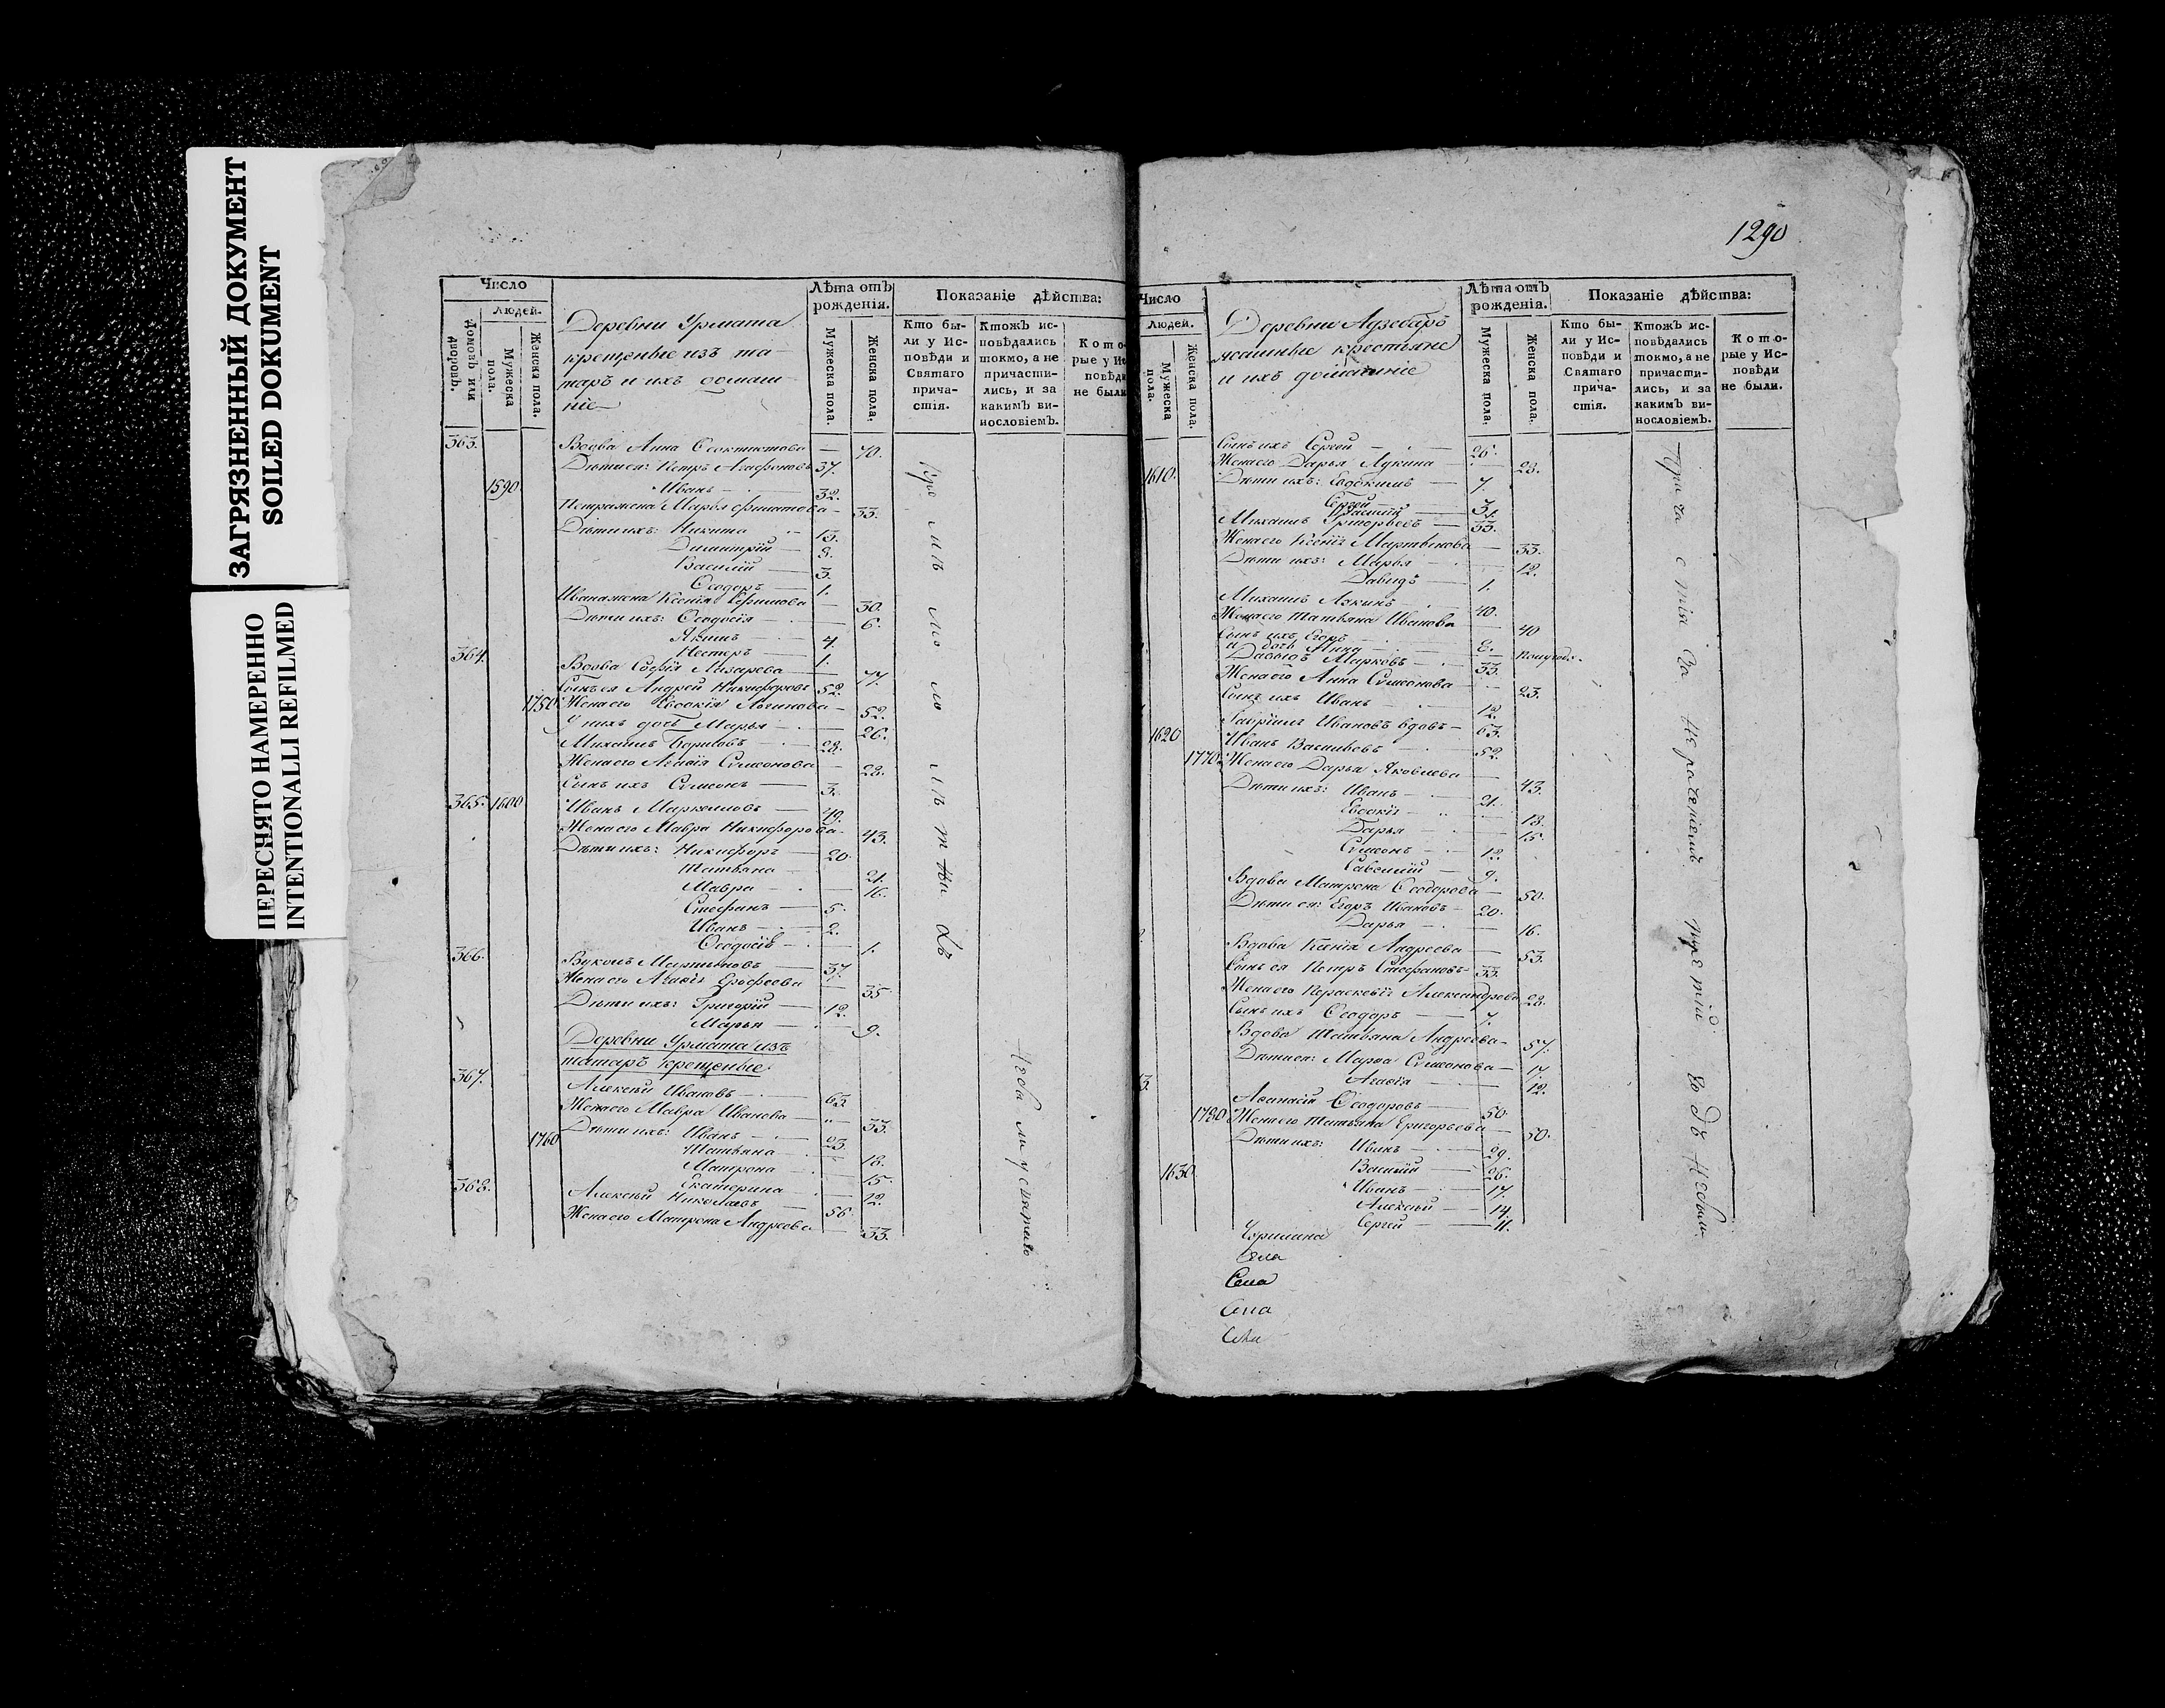 ЗАГРЯЗНЕННЫЙ ДОКУМЕНТ
SOILED DOKUMENT
ПЕРЕСНЯТО НАМЕРЕННО
INTENTIONALLI REFILMED
Число
Людей.
Домовъ или дворовъ.
Мужеска пола.
Женска пола.
Деревни Урмата
крещеные изъ та-
таръ и ихъ домаш-
ніе
Лѣта отъ рожденія.
Мужеска пола.
Женска пола.
Показаніе дѣйства:
Кто бы-
ли у Ис-
повѣди и
Святаго
прича-
стія.
Ктожъ ис-
повѣдались
токмо, а не
причасти-
лись, и за
какимъ ви-
нословіемъ.
Кото-
рые у Ис
повѣди
не были
363. Вдова Анна Феоктистова — 70.
Дѣти ея: Петръ Агафоновъ 37.
1590 Иванъ — 32.
Петра жена Марья Филатова — 33.
Дѣти ихъ: Никита — 13.
Димитрій — 8.
Василій — 3.
Ѳеодоръ — 1.
Ивана жена Ксенія Ефимова — 30.
Дѣти ихъ: Ѳеодосія — 6.
Якимъ — 4.
Несторъ — 1.
364. Вдова Софія Лазарева — 77.
Сынъ ея Андрей Никифоровъ 52.
1750 Жена его Евдокія Логинова — 52.
У нихъ дочь Марья — 26.
Михаилъ Борисовъ — 28.
Жена его Агафія Сѵмеонова — 28.
Сынъ ихъ Сѵмеонъ — 3.
365. 1600 Иванъ Маркеловъ — 49.
Жена его Мавра Никифорова — 43.
Дѣти ихъ: Никифоръ — 20.
Татьяна — 21.
Мавра — 16.
Стефанъ — 5.
Иванъ — 2.
Ѳеодосія — 1.
366. Вуколъ Мартыновъ — 37.
Жена его Агафія Ерофеева — 35
Дѣти ихъ: Григорій — 12.
Марья — 9.
Деревни Урмата изъ
татаръ крещеные:
367. Алексѣй Ивановъ — 63.
Жена его Мавра Иванова — 33.
1760 Дѣти ихъ: Иванъ — 23.
Татьяна — 18.
Матрона — 15.
Екатерина — 12.
368. Алексѣй Николаевъ — 56.
Жена его Матрона Андреева — 33.
1290
Число
Людей.
Мужеска пола.
Женска пола.
Деревни
ясашные крестьяне
и ихъ домашніе
Лѣта отъ рожденія.
Мужеска пола.
Женска пола.
Показаніе дѣйства:
Кто бы-
ли у Ис-
повѣди и
Святаго
прича-
стія.
Ктожъ ис-
повѣдались
токмо, а не
причасти-
лись, и за
какимъ ви-
нословіемъ.
Кото-
рые у Ис-
повѣди
не были.
Сынъ ихъ Сергей — 26.
Жена его Дарья Лукина — 28.
1610. Дѣти ихъ: Евдокимъ — 7.
Михаилъ Григорьевъ — 33.
Жена его Ксенія — 33.
Дѣти ихъ: Марья — 12.
Давидъ — 1.
Михаилъ — 40.
Жена его Татьяна Иванова — 40
Сынъ ихъ Егоръ — 8.
и дочь Анна — полугода.
Давыдъ Марковъ — 33.
Жена его Анна Сѵмеонова — 23.
Сынъ ихъ Иванъ — 12.
Гавріилъ Ивановъ вдовъ — 63.
1620 Иванъ Васильевъ — 52.
1770. Жена его Дарья Яковлева — 43.
Дѣти ихъ: Иванъ — 21.
Евдокія — 18.
Дарья — 15.
Сѵмеонъ — 12.
Савелій — 9.
Вдова Матрона Ѳеодорова — 50.
Дѣти ея: Егоръ Ивановъ — 20.
Дарья — 16.
Вдова Ксенія Андреева — 53.
Сынъ ея Петръ Стефановъ — 33.
Жена его Параскевія Александрова 28.
Сынъ ихъ Ѳеодоръ — 7.
Вдова Татьяна Андреева — 57.
Дѣти ея: Марѳа Сѵмеонова — 17.
Агафія — 12.
Аѳанасій Ѳеодоровъ — 50.
1780 Жена его Татьяна Григорьева — 50.
Дѣти ихъ: Иванъ — 29.
1630 Василій — 26.
Иванъ — 17.
Алексѣй — 14.
Сергей — 11.
Села
Села
Села
Села